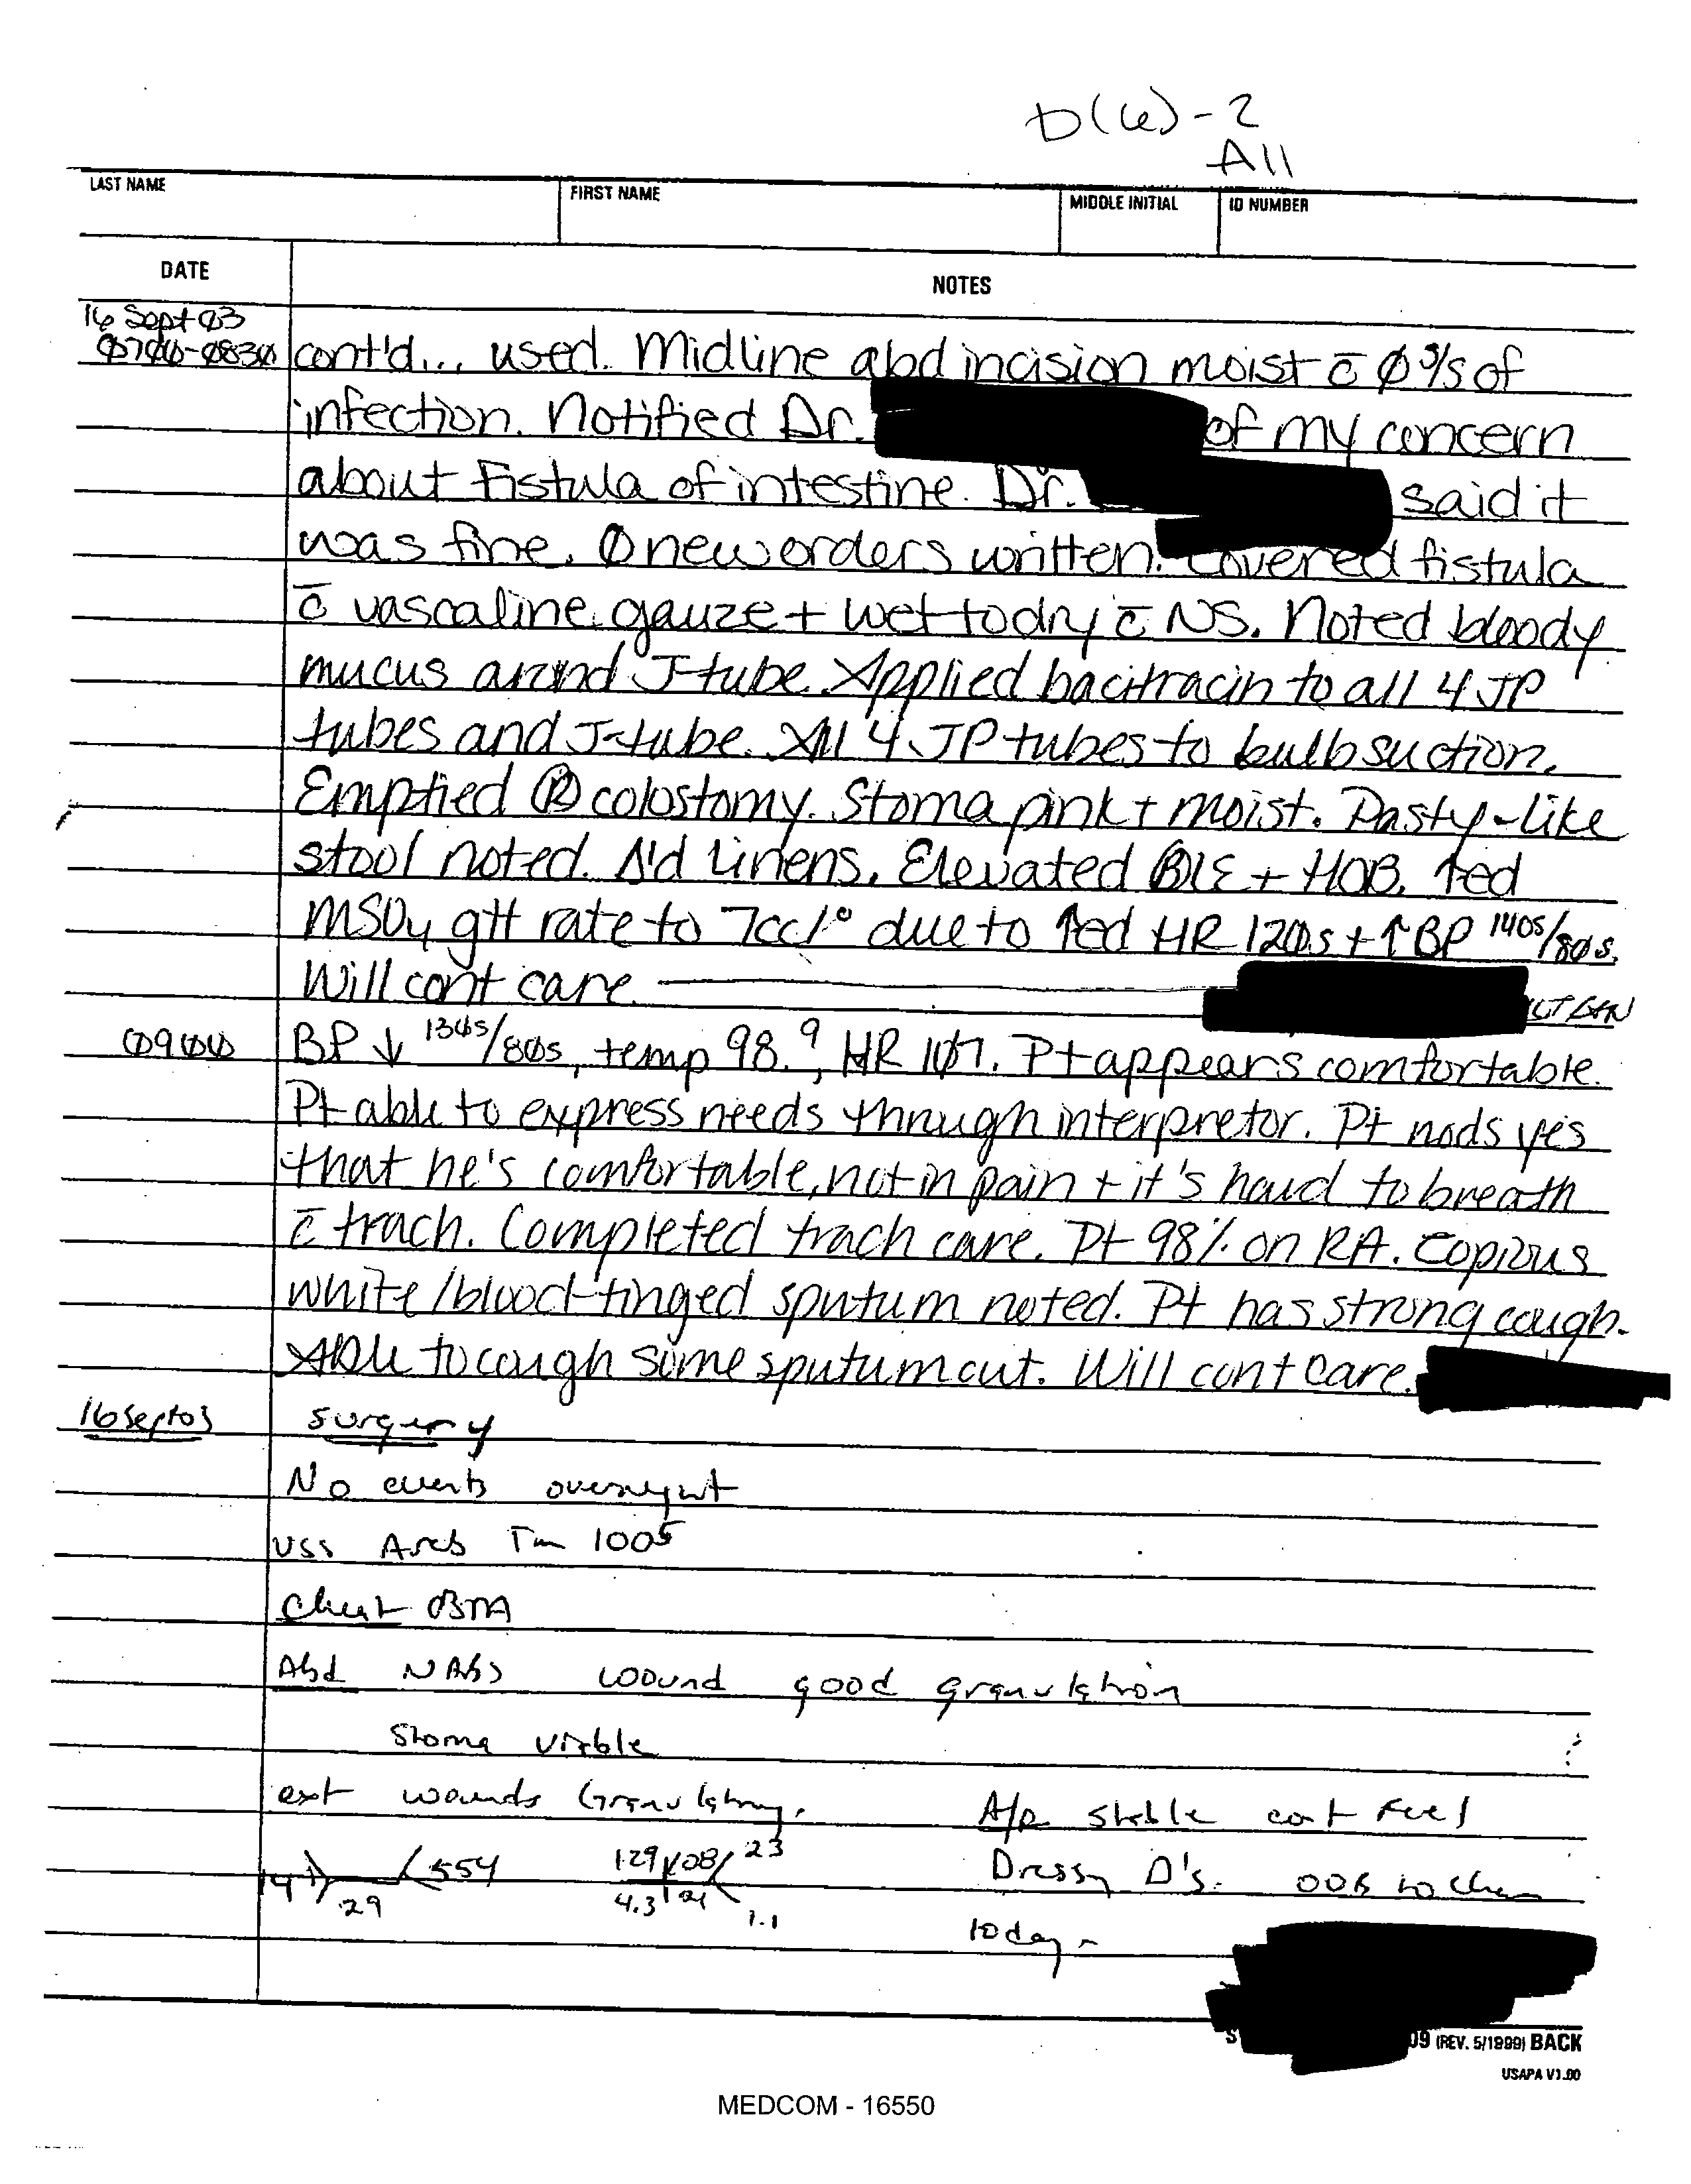 b(6)-2
All
LAST NAME FIRST NAME MIDDLE INITIAL ID NUMBER
DATE NOTES
16 Sept 03
0700-0830 cont'd... used. Midline abd incision moist c̄ Ø s/s of
infection. Notified Dr. of my concern
about Fistula of intestine. Dr. said it
was fine. Ø new orders written. Covered fistula
c̄ vascaline gauze + wet to dry c̄ NS. Noted bloody
mucus around J-tube. Applied bacitracin to all 4 JP
tubes and J-tube. All 4 JP tubes to bulb suction.
Emptied Ⓡ colostomy. Stoma pink + moist. Pasty-like
stool noted. Δ'd linens. Elevated BLE + HOB. ↑ed
MSO4 gtt rate to 7cc/° due to ↑ed HR 120s + ↑BP 140s/80s.
Will cont care.
0900 BP ↓ 130s/80s, temp 98.9, HR 107. Pt appears comfortable.
Pt able to express needs through interpretor. Pt nods yes
that he's comfortable, not in pain + it's hard to breath
c̄ trach. Completed trach care. Pt 98% on RA. Copious
white/blood-tinged sputum noted. Pt has strong cough.
Able to cough some sputum out. Will cont care.
16 Sept 03 Surgery
No events overnight
VSS Tm 100⁵
Chest
Abd NABS wound good granulation
Stoma viable
ext wounds Granulating. A/P stable cont
29 554 129 108 23 4.3 1.1 Dressy Δ's. OOB to chair
today
09 (REV. 5/1999) BACK
USAPA V1.00
MEDCOM - 16550